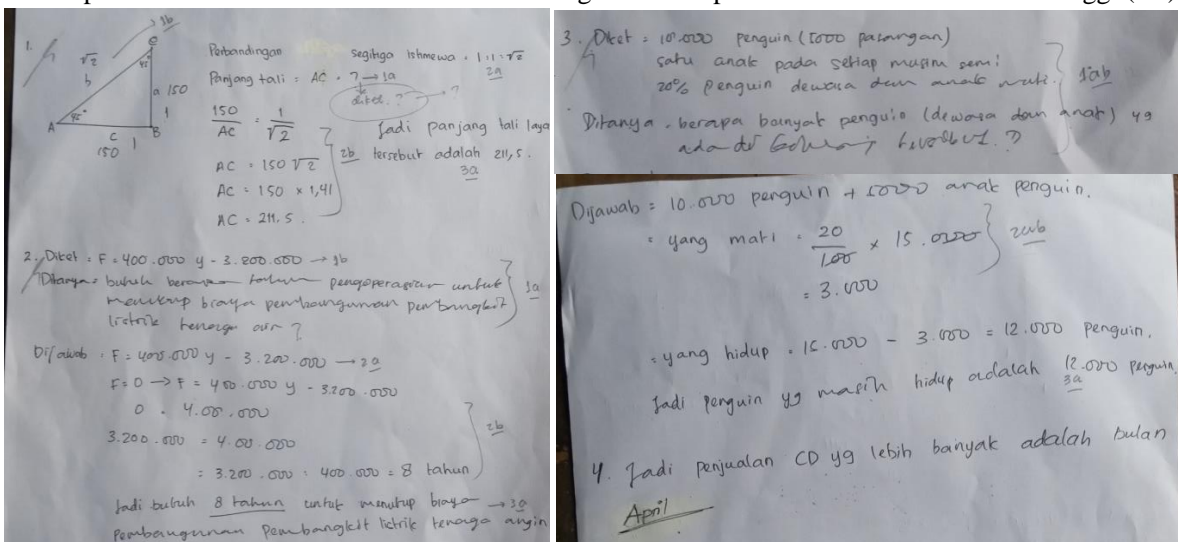 1.
√2
b
1b
C
45°
a 150
1
A
45°
c
B
1
150
Perbandingan segitiga istimewa = 1:1:√2
2a
Panjang tali = AC = ? → 1a
diket. ? → ?
150/AC = 1/√2
AC = 150 √2
AC = 150 × 1,41
AC = 211,5.
2b
Jadi panjang tali layar
tersebut adalah 211,5.
3a
2. Diket = F = 400.000 y - 3.200.000 → 1b
Ditanya = butuh berapa tahun pengoperasian untuk
menutup biaya pembangunan pembangkit
listrik tenaga air ?
1a
Dijawab = F = 400.000 y - 3.200.000 → 2a
F = 0 → F = 400.000 y - 3.200.000
0 = 4.00.000
3.200.000 = 4.00.000
= 3.200.000 : 400.000 = 8 tahun
2b
Jadi butuh 8 tahun untuk menutup biaya → 3a
pembangunan pembangkit listrik tenaga angin
3. Diket = 10.000 penguin (5000 pasangan)
satu anak pada setiap musim semi
20% penguin dewasa dan anak mati.
1ab
Ditanya = berapa banyak penguin (dewasa dan anak) yg
ada di tersebut. ?
Dijawab = 10.000 penguin + 5000 anak penguin.
= yang mati = 20/100 × 15.000
= 3.000
2ab
= yang hidup = 15.000 - 3.000 = 12.000 penguin.
Jadi penguin yg masih hidup adalah 12.000 penguin.
3a
4. Jadi penjualan CD yg lebih banyak adalah bulan
April